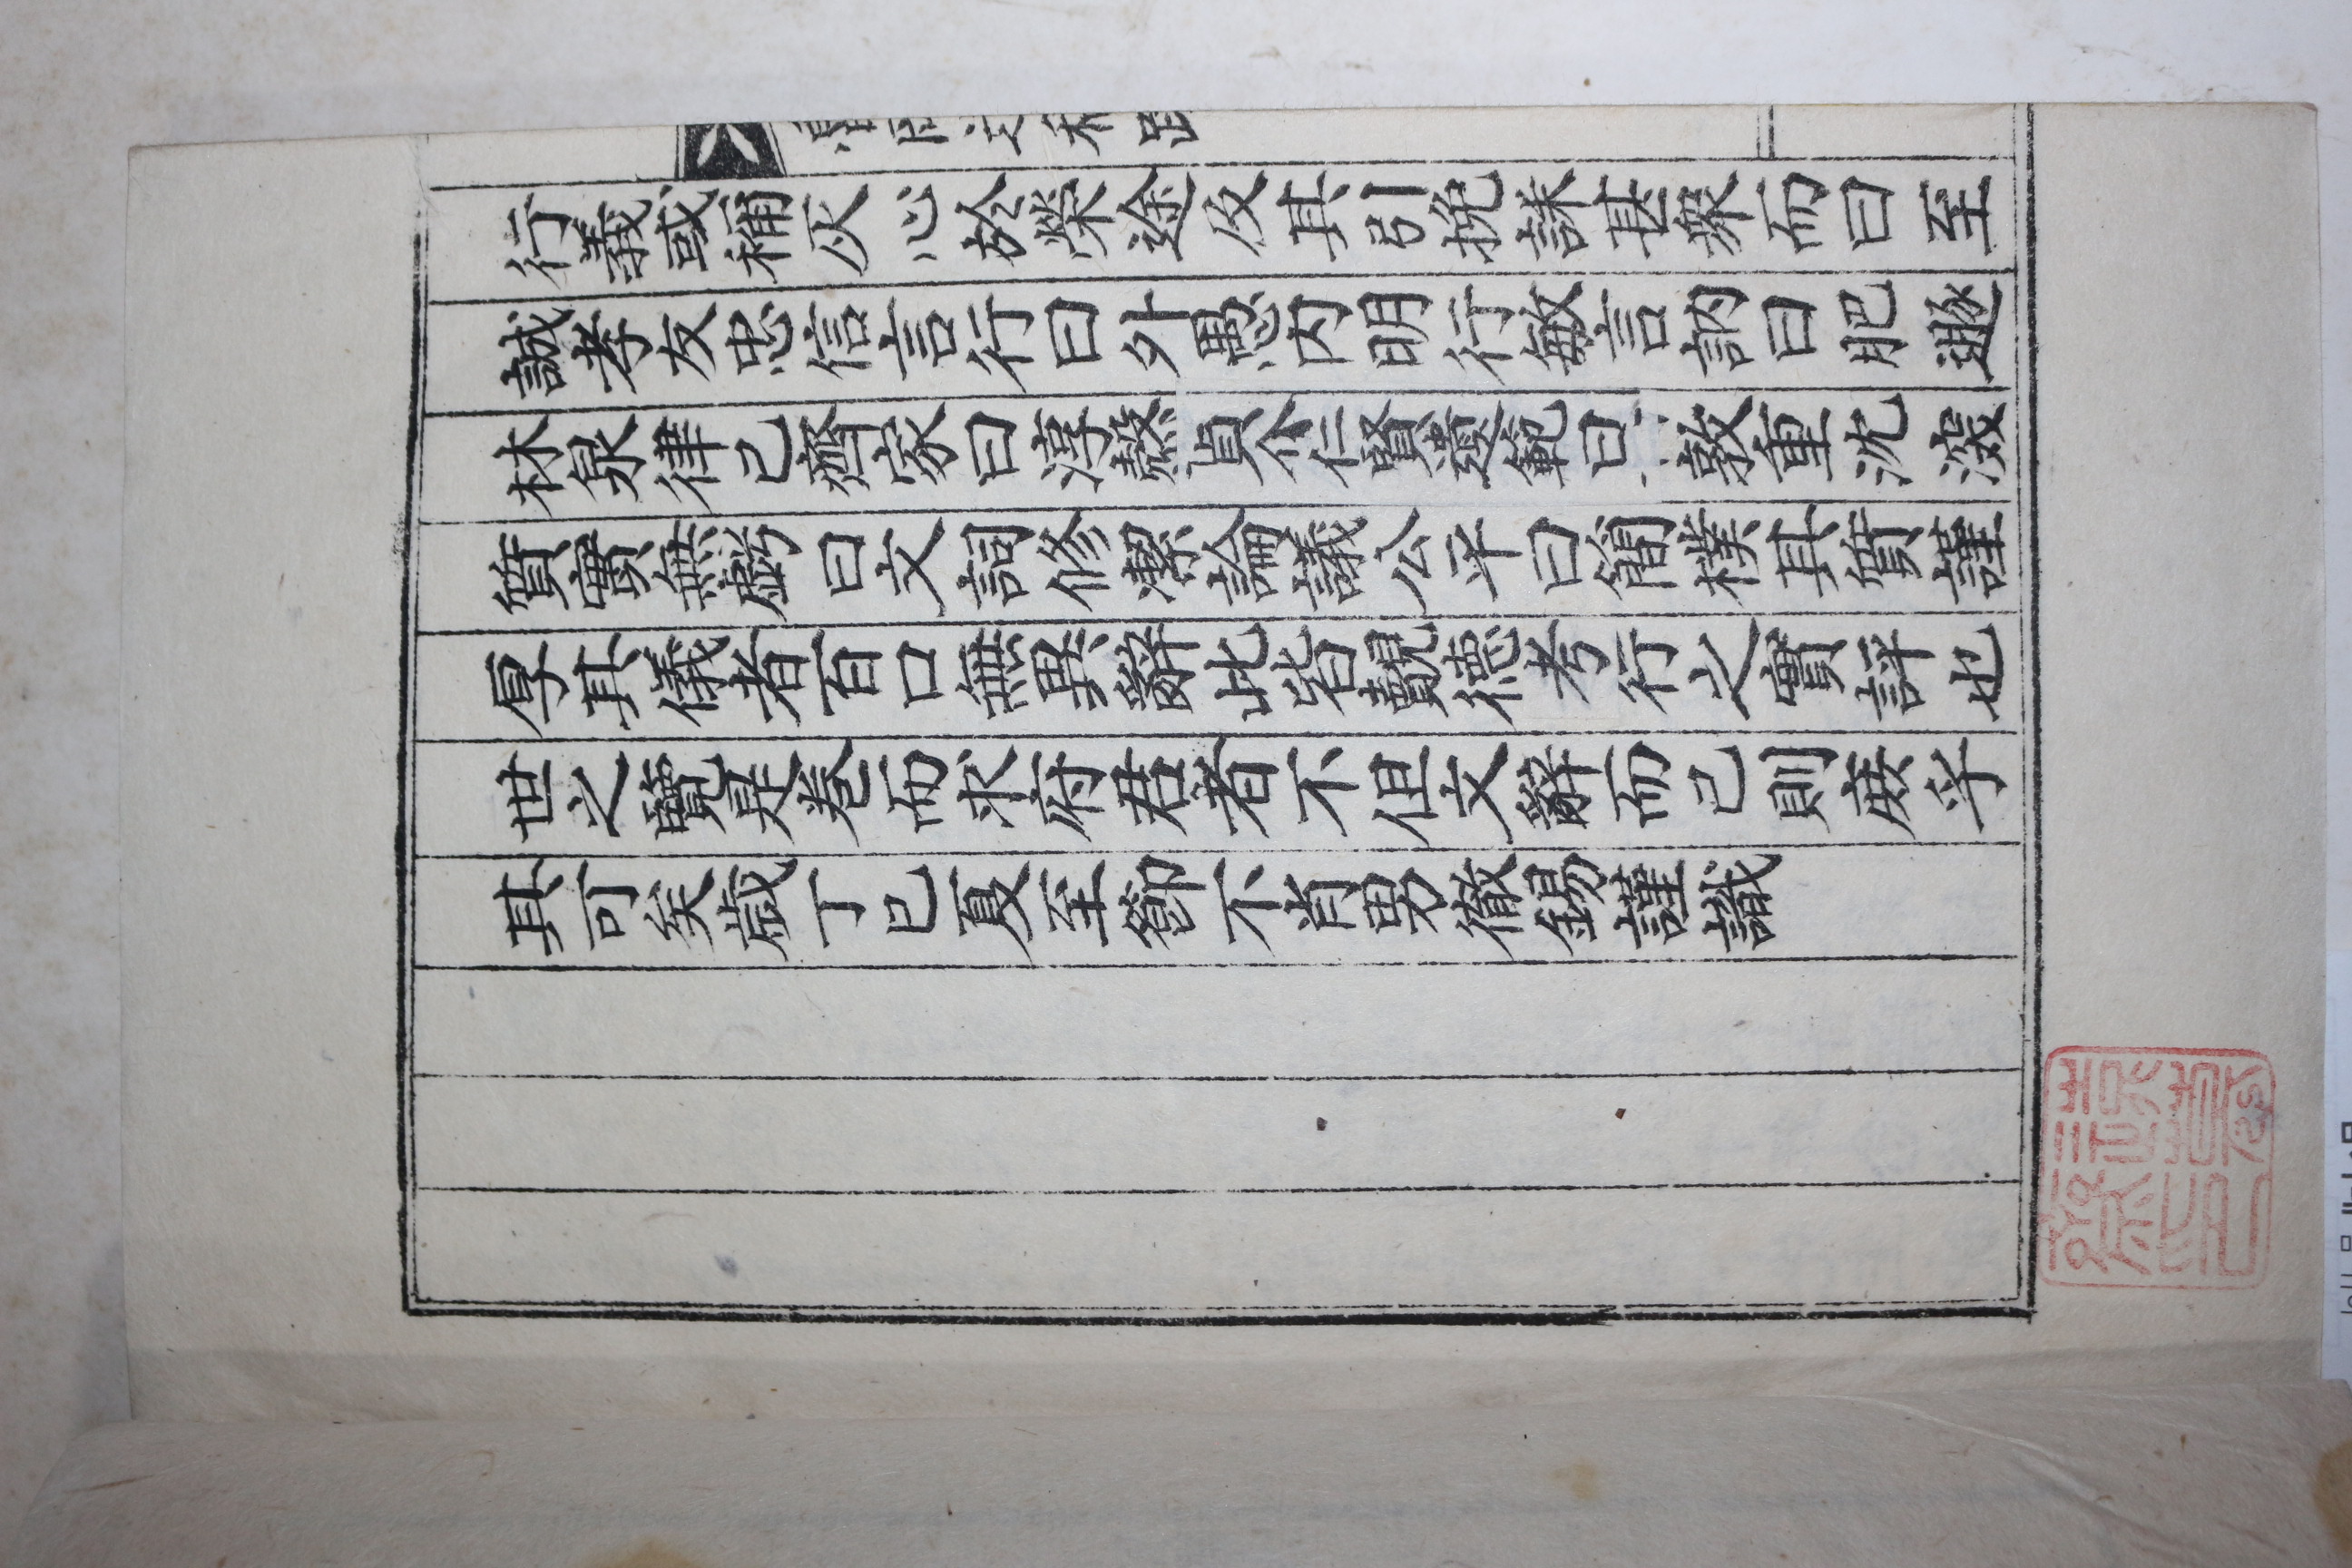 行義或稱灰心於榮途及其引挽誄甚衆而曰至
誠孝友忠信言行曰外愚内明行敏言訥曰肥遯
林泉律己齊家曰淳慤貞介仁賢遺範曰敦重沈深
質實無虧曰文詞修潔論議公平曰簡樸其質謹
厚其儀者百口無異辭此皆覿德考行之實評也
世之覽是卷而求府君者不但文辭而已則庶乎
其可矣歲丁巳夏至節不肖男徹錫謹識